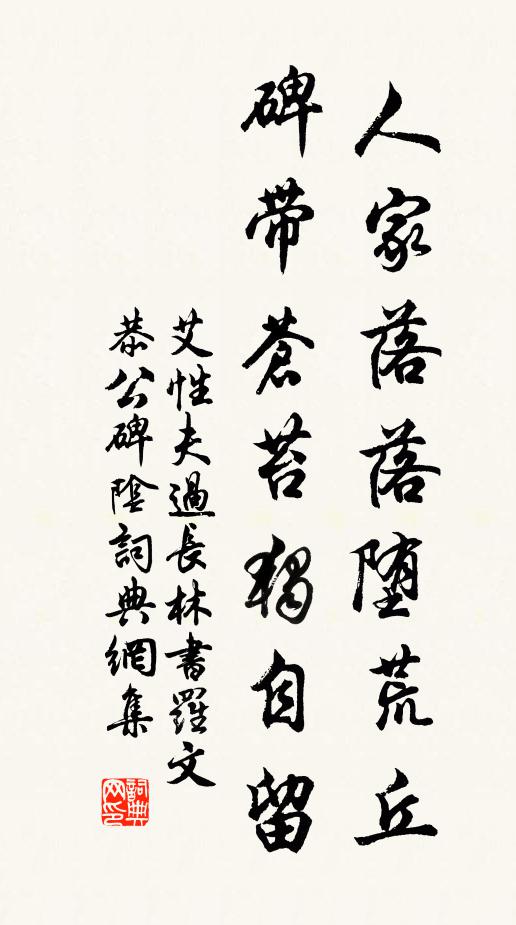 人家落落堕荒丘
碑带蒼苔独自留
艾性夫過長林書羅文
恭公碑陰詞典網集
詞典网印